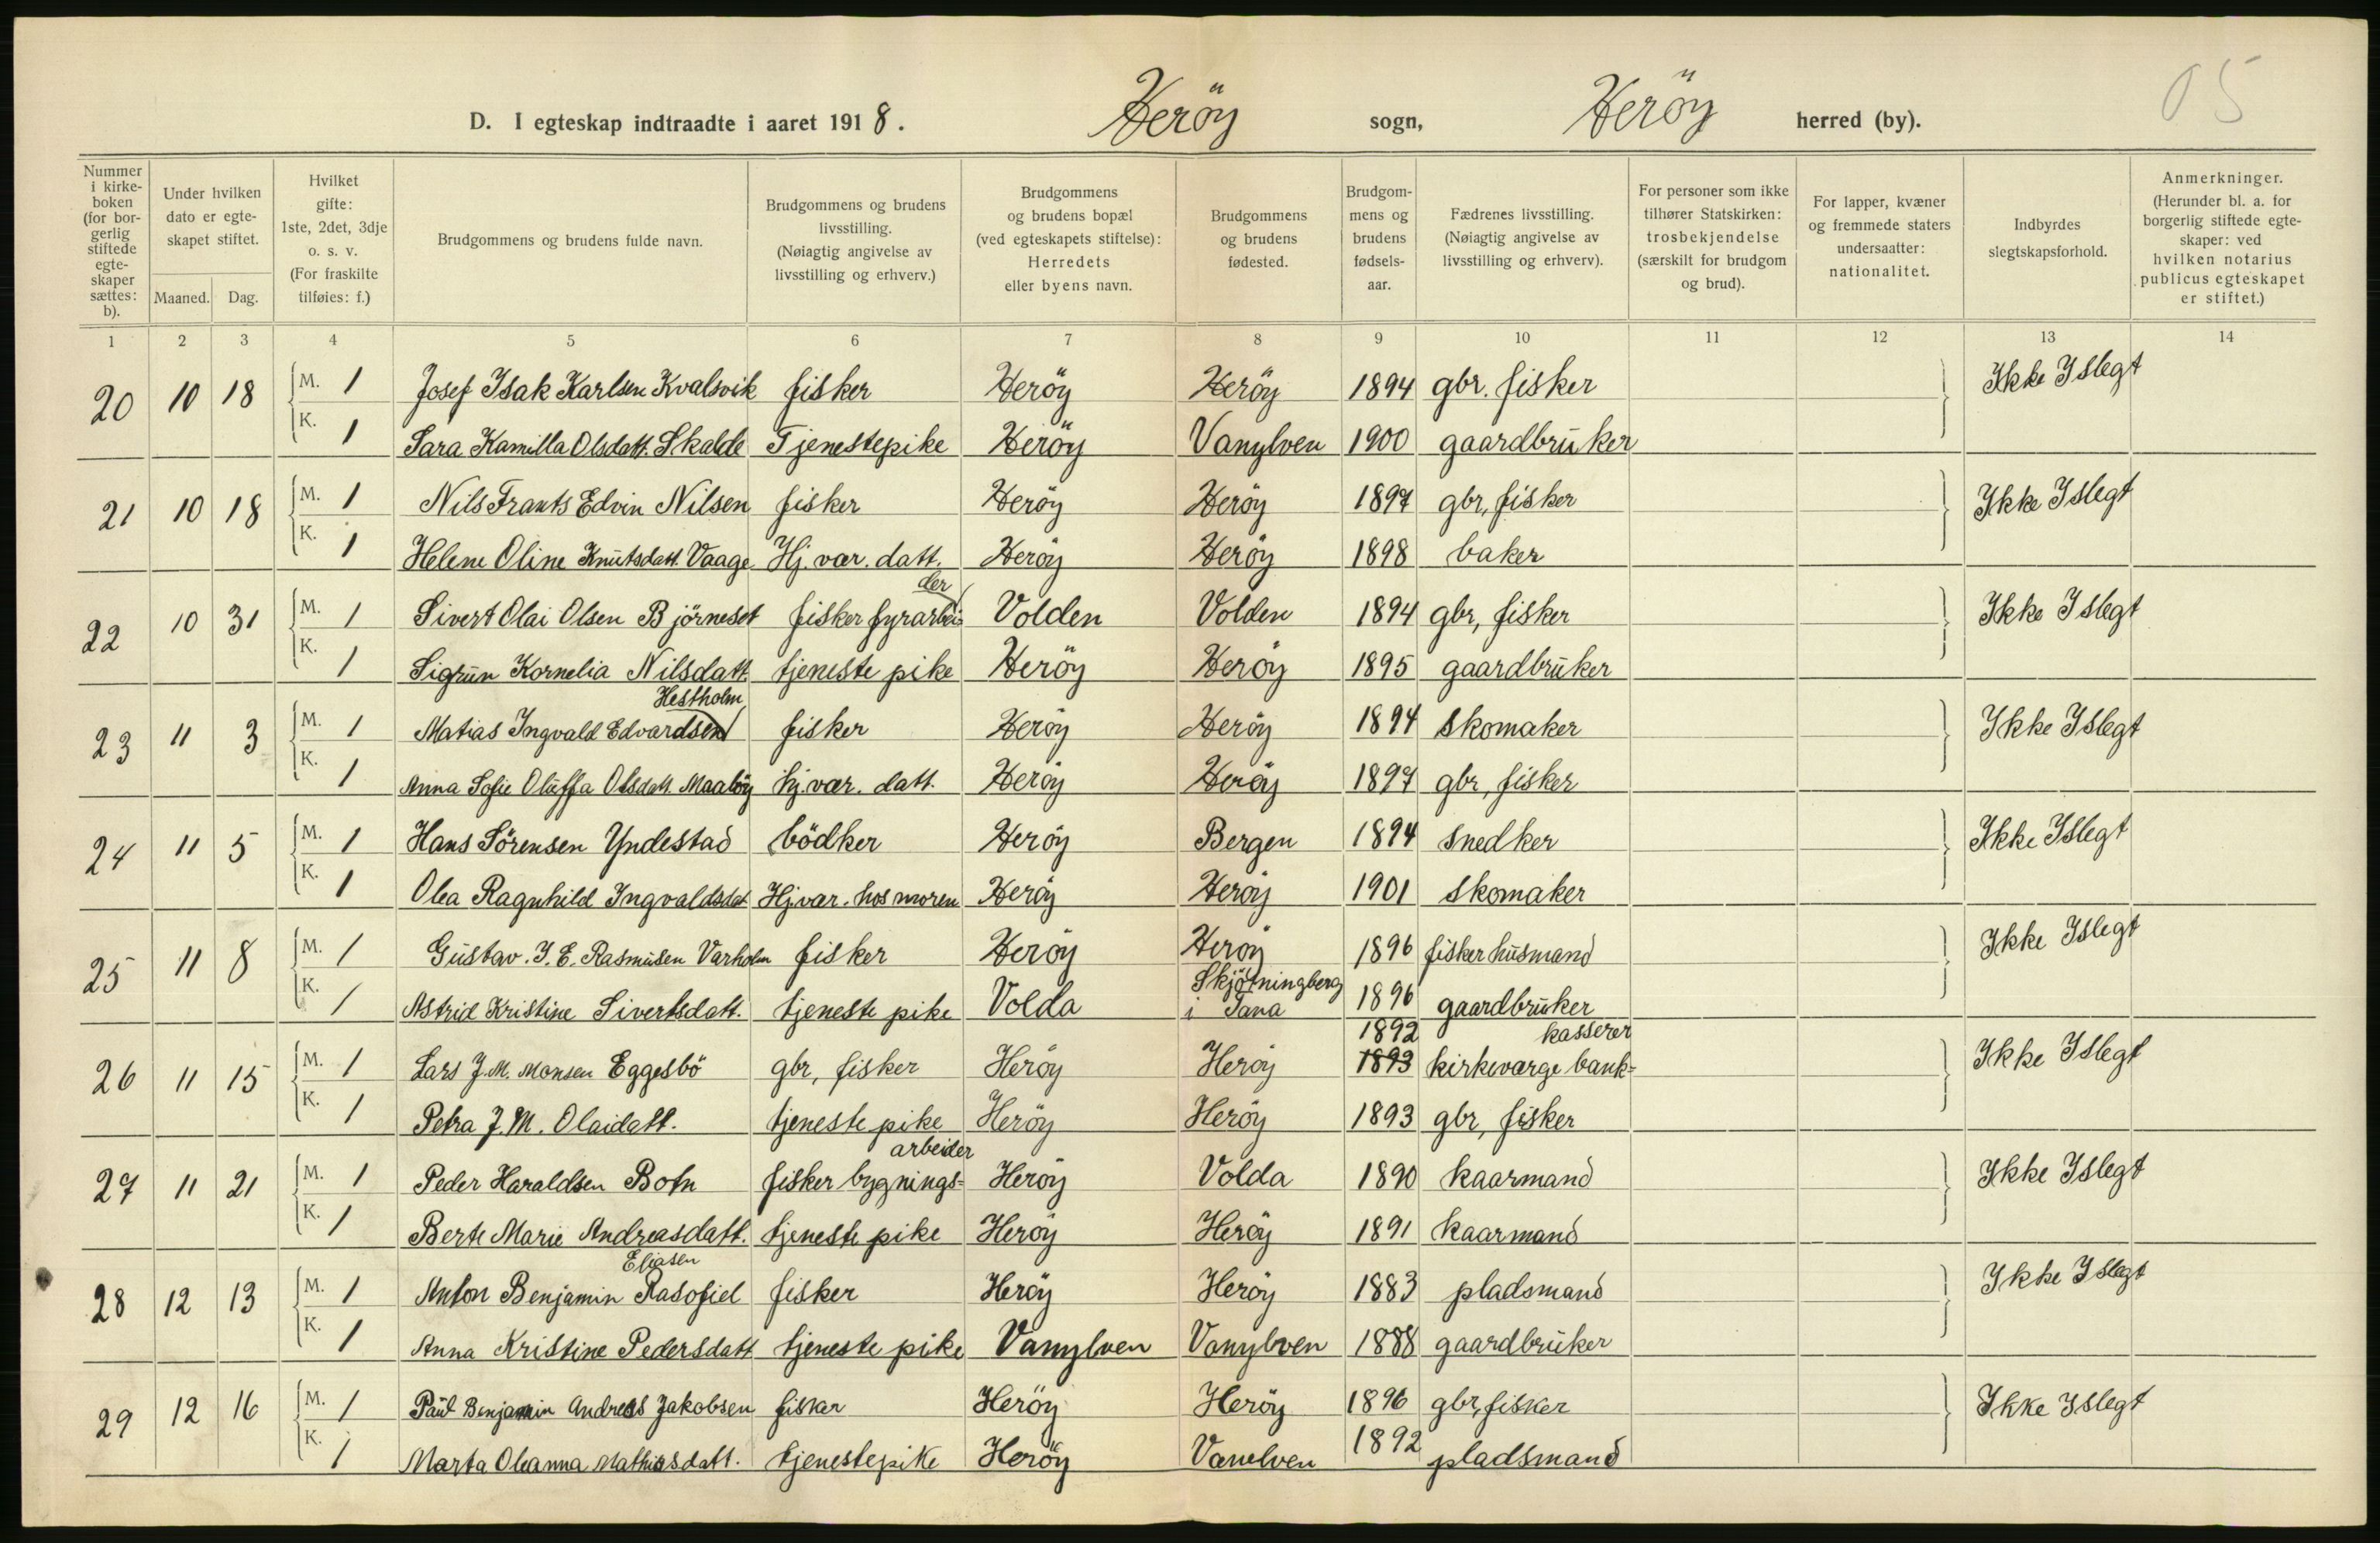 05
D. I egteskap indtraadte i aaret 1918. Heröy sogn, Heröy herred (by).
Nummer i kirke-boken (for bor-gerlig stiftede egte-skaper sættes: b).
Under hvilken dato er egte-skapet stiftet.
Maaned. Dag.
Hvilket gifte: 1ste, 2det, 3dje o. s. v. (For fraskilte tilføies: f.)
Brudgommens og brudens fulde navn.
Brudgommens og brudens livsstilling. (Nøiagtig angivelse av livsstilling og erhverv.)
Brudgommens og brudens bopæl (ved egteskapets stiftelse): Herredets eller byens navn.
Brudgommens og brudens fødested.
Brudgom-mens og brudens fødsels-aar.
Fædrenes livsstilling. (Nøiagtig angivelse av livsstilling og erhverv).
For personer som ikke tilhører Statskirken: trosbekjendelse (særskilt for brudgom og brud).
For lapper, kvæner og fremmede staters undersaatter: nationalitet.
Indbyrdes slegtskapsforhold.
Anmerkninger. (Herunder bl. a. for borgerlig stiftede egte-skaper: ved hvilken notarius publicus egteskapet er stiftet.)
1 2 3 4 5 6 7 8 9 10 11 12 13 14
20 10 18 M. 1 Josef Isak Karlsen Kvalsvik fisker Heröy Heröy 1894 gbr. fisker Ikke Islegt
K. 1 Sara Kamilla Olsdatt. Skalde Tjenestepike Heröy Vanylven 1900 gaardbruker
21 10 18 M. 1 Nils Frants Edvin Nilsen fisker Heröy Heröy 1897 gbr, fisker Ikke Islegt
K. 1 Helene Oline Knutsdatt. Vaage Hj. vær. datt. Heröy Heröy 1898 baker
22 10 31 M. 1 Sivert Olai Olsen Björneset fisker fyrarbei-der Volden Volden 1894 gbr, fisker Ikke Islegt
K. 1 Sigrun Kornelia Nilsdatt. tjeneste pike Heröy Heröy 1895 gaardbruker
23 11 3 M. 1 Matias Ingvald Edvardsen Hestholm fisker Heröy Heröy 1894 skomaker Ikke Islegt
K. 1 Anna Sofie Oluffa Olsdatt. Maaløy hj. vær. datt. Heröy Heröy 1897 gbr, fisker
24 11 5 M. 1 Hans Sörensen Yndestad bödker Heröy Bergen 1894 snedker Ikke Islegt
K. 1 Olea Ragnhild Ingvaldsdat Hj. vær. hos moren Heröy Heröy 1901 skomaker
25 11 8 M. 1 Gustav. J. E. Rasmusen Varholm fisker Heröy Heröy 1896 fisker husmand Ikke Islegt
K. 1 Astrid Kristine Sivertsdatt. tjeneste pike Volda Skjötningberg i Tana 1896 gaardbruker
26 11 15 M. 1 Lars J. M. Monsen Eggesbö gbr, fisker Heröy Heröy 1892 1893 kirkeværge bank-kasserer Ikke Islegt
K. 1 Petra J. M. Olaidatt. tjeneste pike Heröy Heröy 1893 gbr, fisker
27 11 21 M. 1 Peder Haraldsen Botn fisker bygnings-arbeider Heröy Volda 1890 kaarmand Ikke Islegt
K. 1 Berte Marie Andreasdatt. tjeneste pike Heröy Heröy 1891 kaarmand
28 12 13 M. 1 Anton Benjamin Eliasen Rasofiel fisker Heröy Heröy 1883 pladsmand Ikke Islegt
K. 1 Anna Kristine Pedersdatt tjeneste pike Vanylven Vanylven 1888 gaardbruker
29 12 16 M. 1 Paul Benjamin Andreas Jakobsen fisker Heröy Heröy 1896 gbr, fisker Ikke Islegt
K. 1 Marta Oleanna Mathiasdatt. tjenestepike Heröy Vanelven 1892 pladsmand